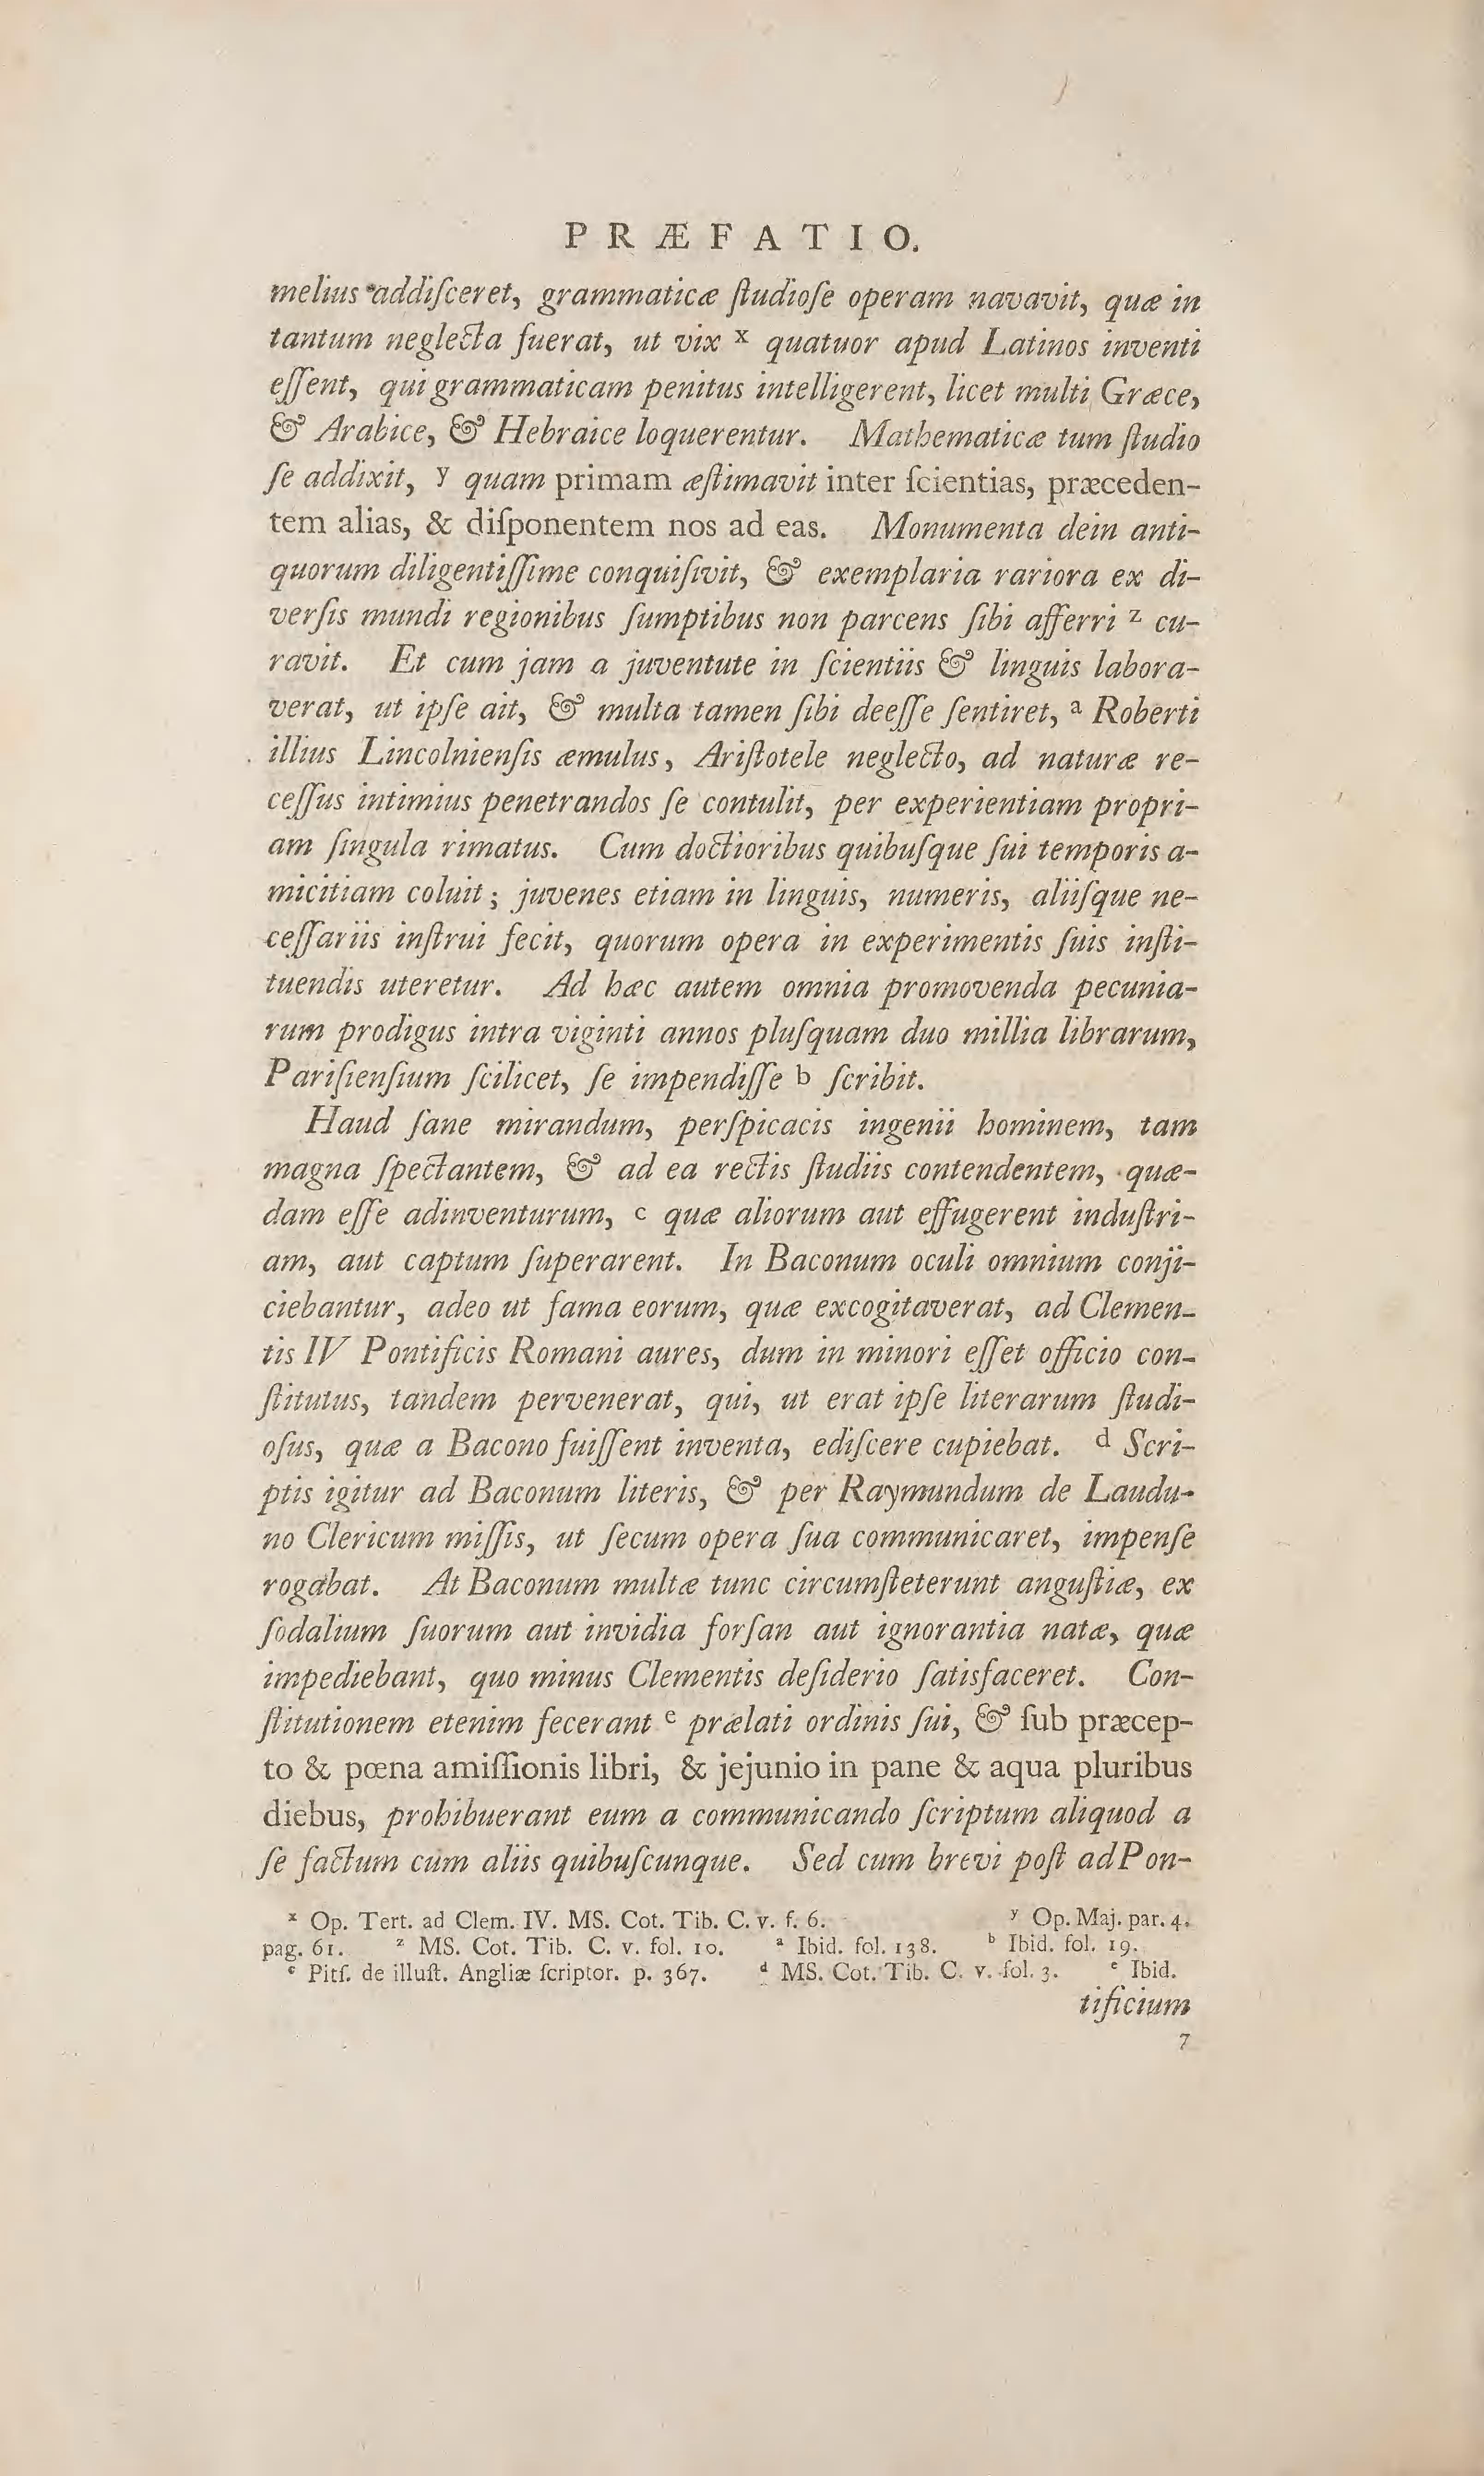 PRÆFATIO.
melius addiſceret, grammaticæ ſtudioſe operam navavit, quæ in
tantum neglecta fuerat, ut vix x quatuor apud Latinos inventi
eſſent, qui grammaticam penitus intelligerent, licet multi Græce,
& Arabice, & Hebraice loquerentur. Mathematicæ tum ſtudio
ſe addixit, y quam primam æſtimavit inter ſcientias, præceden-
tem alias, & diſponentem nos ad eas. Monumenta dein anti-
quorum diligentiſſime conquiſivit, & exemplaria rariora ex di-
verſis mundi regionibus ſumptibus non parcens ſibi afferri z cu-
ravit. Et cum jam a juventute in ſcientiis & linguis labora-
verat, ut ipſe ait, & multa tamen ſibi deeſſe ſentiret, a Roberti
illius Lincolnienſis æmulus, Ariſtotele neglecto, ad naturæ re-
ceſſus intimius penetrandos ſe contulit, per experientiam propri-
am ſingula rimatus. Cum doctioribus quibuſque ſui temporis a-
micitiam coluit; juvenes etiam in linguis, numeris, aliiſque ne-
ceſſariis inſtrui fecit, quorum opera in experimentis ſuis inſti-
tuendis uteretur. Ad hæc autem omnia promovenda pecunia-
rum prodigus intra viginti annos pluſquam duo millia librarum,
Pariſienſium ſcilicet, ſe impendiſſe b ſcribit.
Haud ſane mirandum, perſpicacis ingenii hominem, tam
magna ſpectantem, & ad ea rectis ſtudiis contendentem, quæ-
dam eſſe adinventurum, c quæ aliorum aut effugerent induſtri-
am, aut captum ſuperarent. In Baconum oculi omnium conji-
ciebantur, adeo ut fama eorum, quæ excogitaverat, ad Clemen-
tis IV Pontificis Romani aures, dum in minori eſſet officio con-
ſtitutus, tandem pervenerat, qui, ut erat ipſe literarum ſtudi-
oſus, quæ a Bacono fuiſſent inventa, ediſcere cupiebat. d Scri-
ptis igitur ad Baconum literis, & per Raymundum de Laudu-
no Clericum miſſis, ut ſecum opera ſua communicaret, impenſe
rogabat. At Baconum multæ tunc circumſteterunt anguſtiæ, ex
ſodalium ſuorum aut invidia forſan aut ignorantia natæ, quæ
impediebant, quo minus Clementis deſiderio ſatisfaceret. Con-
ſtitutionem etenim fecerant e prælati ordinis ſui, & ſub præcep-
to & pœna amiſſionis libri, & jejunio in pane & aqua pluribus
diebus, prohibuerant eum a communicando ſcriptum aliquod a
ſe factum cum aliis quibuſcunque. Sed cum brevi poſt ad Pon-
x Op. Tert. ad Clem. IV. MS. Cot. Tib. C. v. f. 6. y Op. Maj. par. 4.
pag. 61. z MS. Cot. Tib. C. v. fol. 10. a Ibid. fol. 138. b Ibid. fol. 19.
c Pitſ. de illuſt. Angliæ ſcriptor. p. 367. d MS. Cot. Tib. C. v. fol. 3. e Ibid.
tificium
7